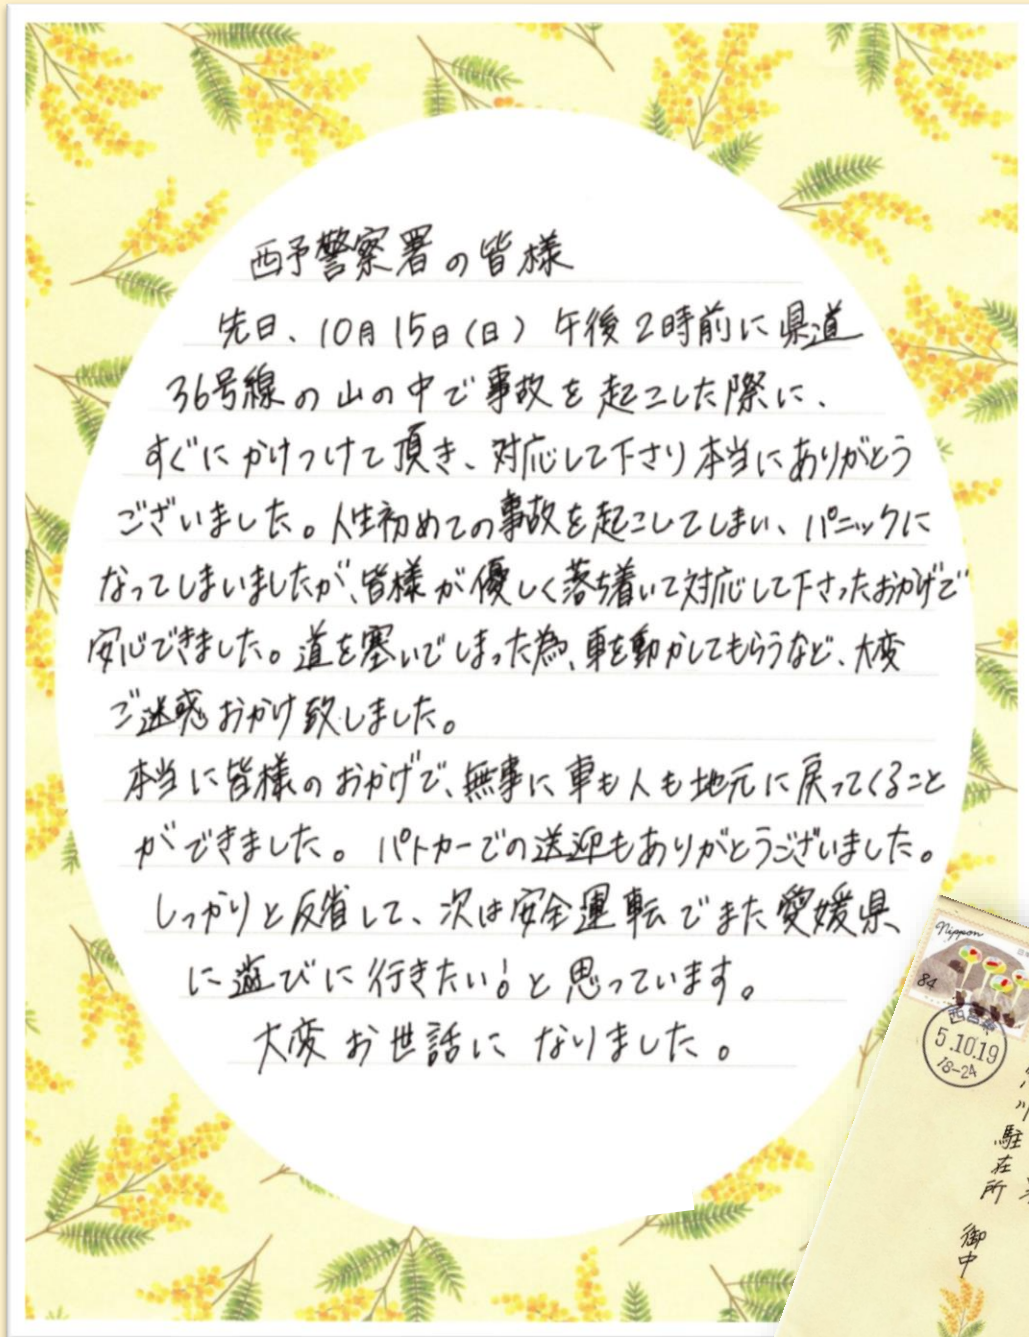 西予警察署の皆様
先日、10月15日(日) 午後2時前に県道
36号線の山の中で事故を起こした際に、
すぐにかけつけて頂き、対応して下さり本当にありがとう
ございました。人生初めての事故を起こしてしまい、パニックに
なってしまいましたが、皆様が優しく落ち着いて対応して下さったおかげで
安心できました。道を塞いでしまった為、車を動かしてもらうなど、大変
ご迷惑おかけ致しました。
本当に皆様のおかげで、無事に車も人も地元に戻ってくること
ができました。パトカーでの送迎もありがとうございました。
しっかりと反省して、次は安全運転でまた愛媛県
に遊びに行きたい!と思っています。
大変お世話になりました。
Nippon
84
西宮東
5.10.19
18-24
川駐在所 御中